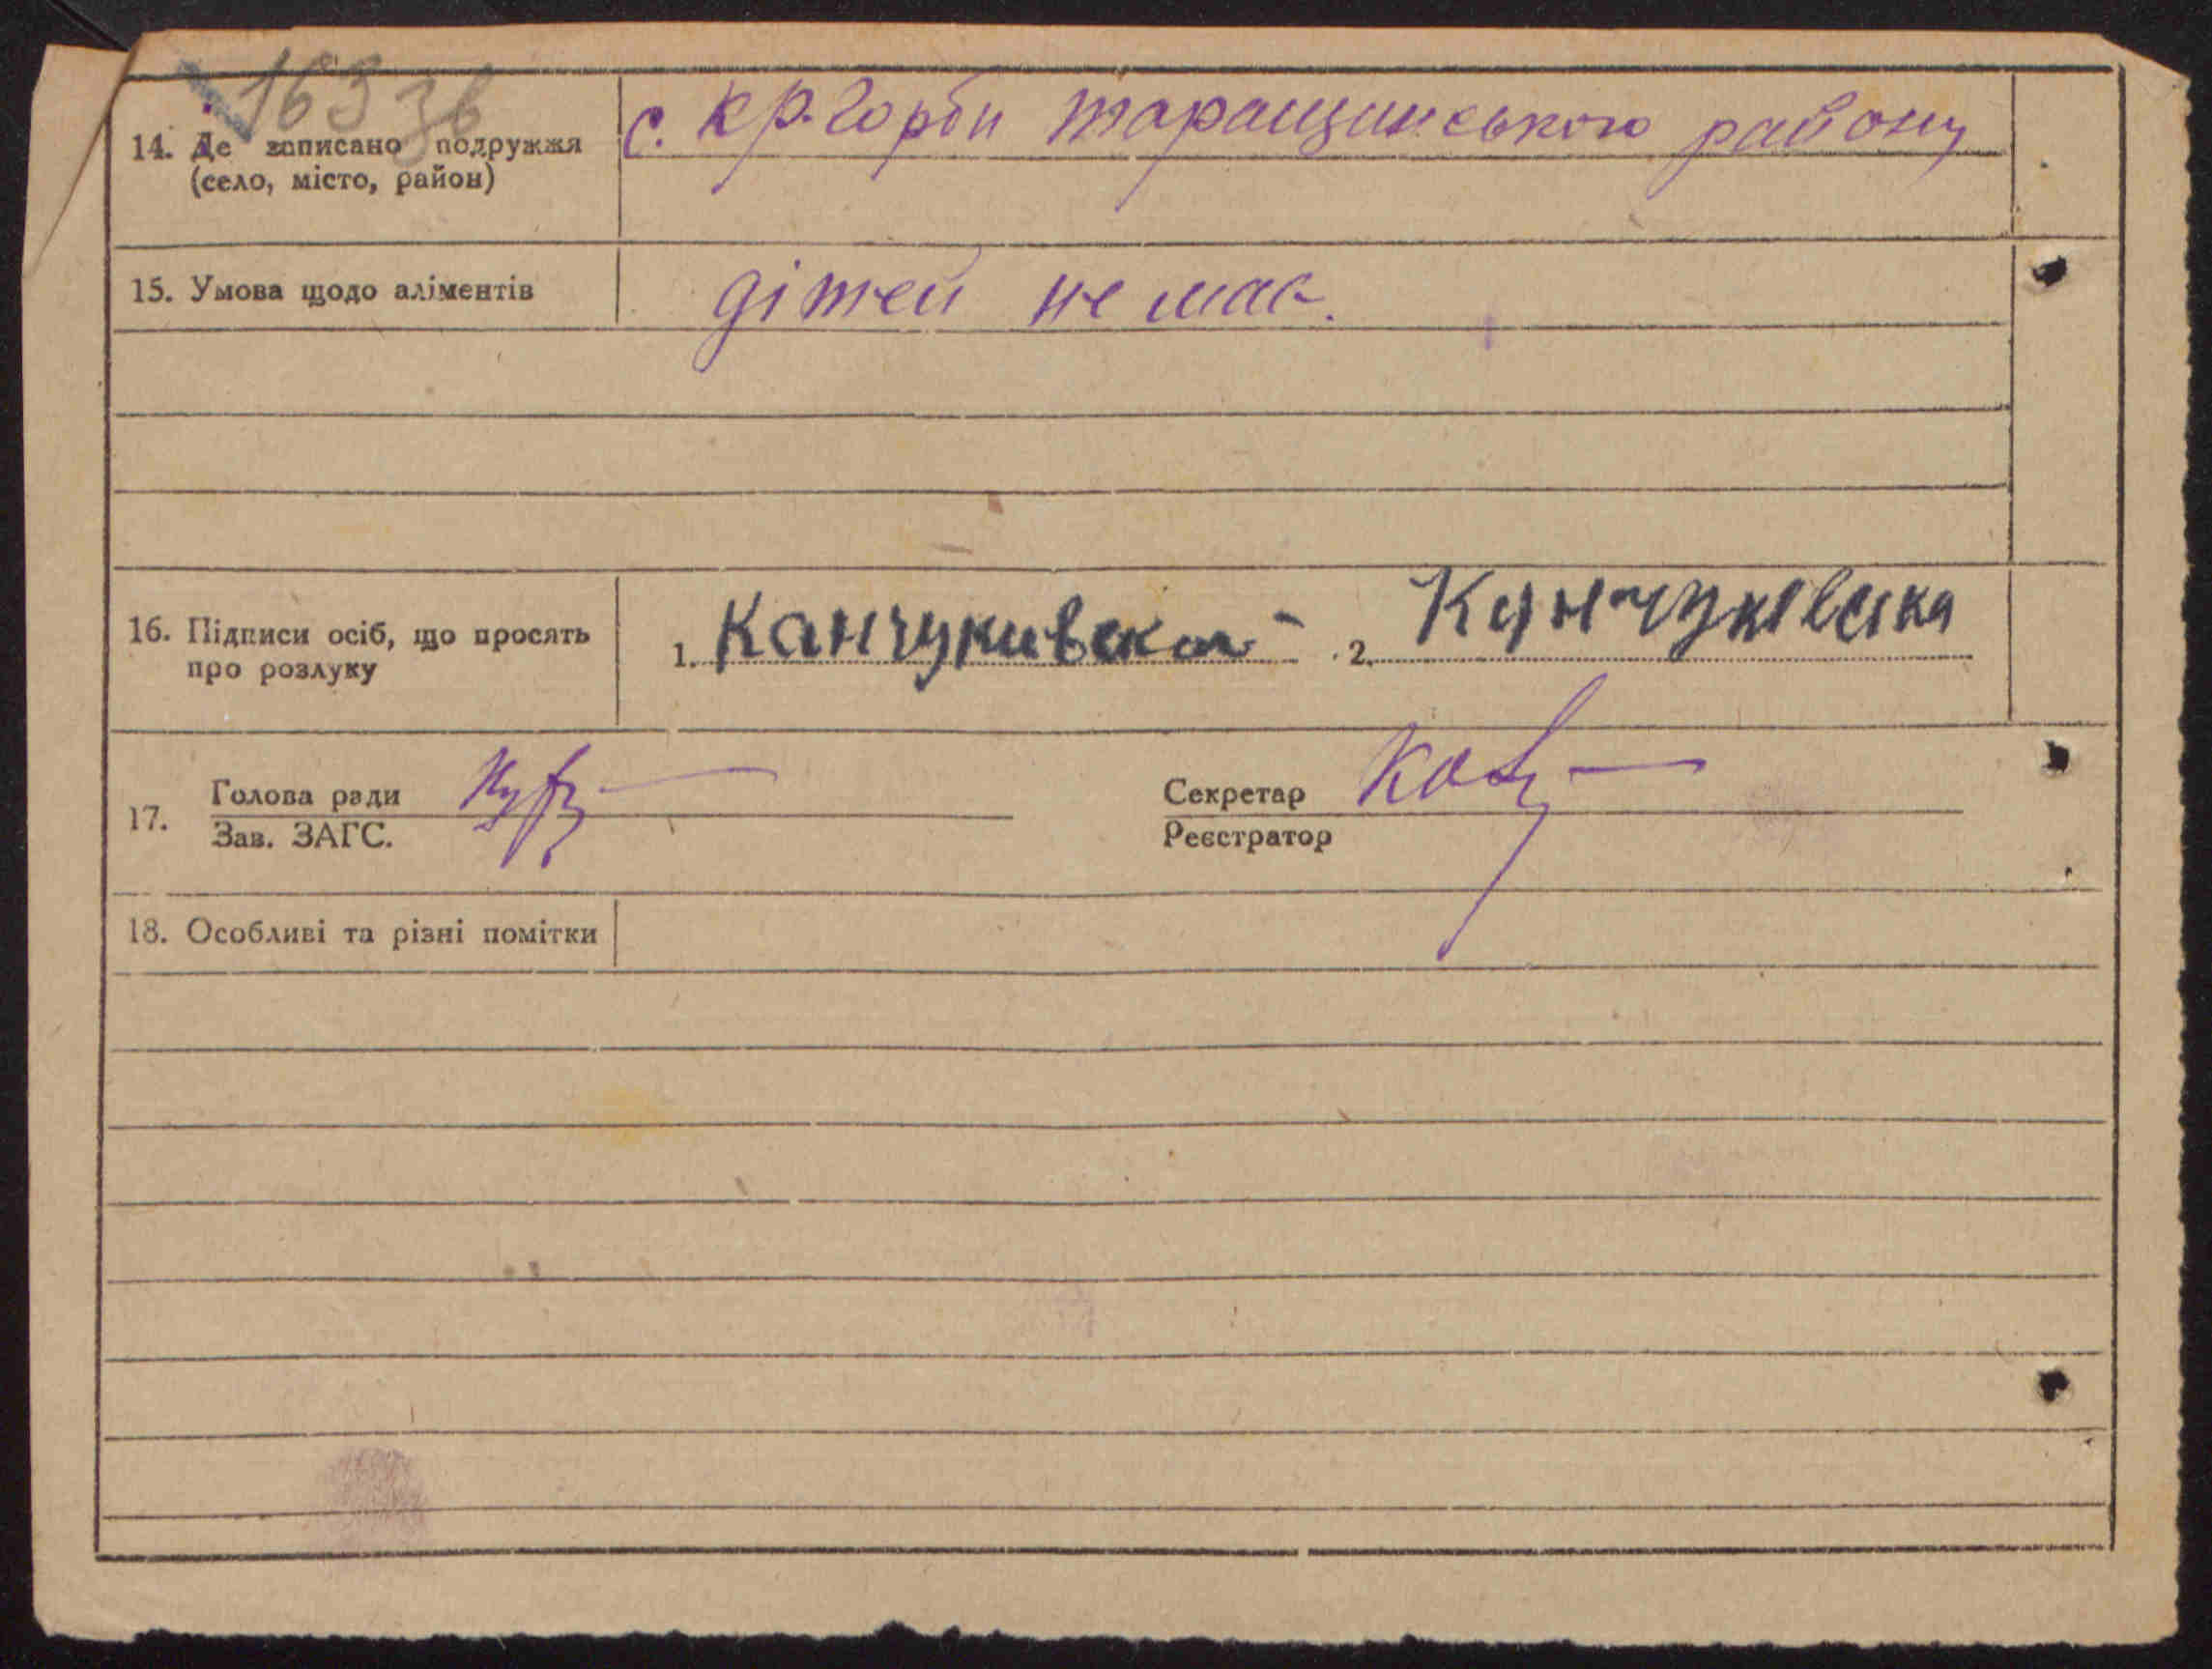 163 зв
14. Де записано подружжя
(село, місто, район)
с. Кр. Горби Таращинського району
15. Умова щодо аліментів
дітей не має.
16. Підписи осіб, що просять
про розлуку
1. Канчукивская 2. Кунчуківська
17. Голова ради
Зав. ЗАГС.
Секретар
Реєстратор
18. Особливі та різні помітки